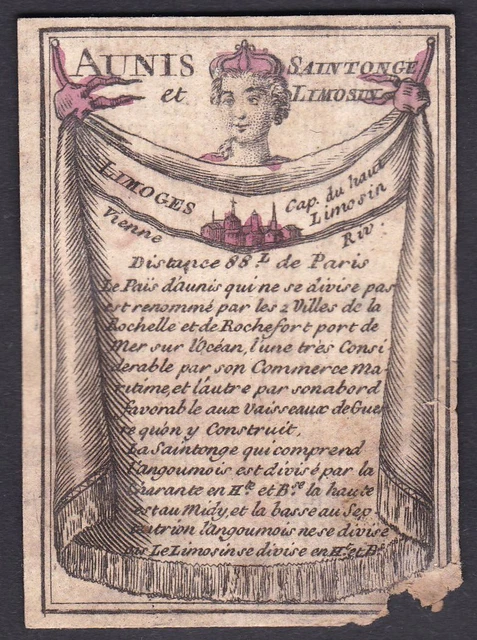 AUNIS SAINTONGE
et LIMOSIN
LIMOGES Cap. du haut
Limosin
Vienne Riv.
Distance 88 L. de Paris
Le Païs d'aunis qui ne se divise pas
est renommé par les 2 Villes de la
Rochelle et de Rochefort port de
Mer sur l'Océan, l'une très Consi
derable par son Commerce Ma-
ritime, et l'autre par son abord
favorable aux Vaisseaux de Guer
re qu'on y Construit,
La Saintonge qui comprend
l'angoumois est divisé par la
Charante en Hte. et Bse. la haute
est au Midy, et la basse au Sep-
tentrion l'angoumois ne se divise
pas Le Limosin se divise en Ht. et Bs